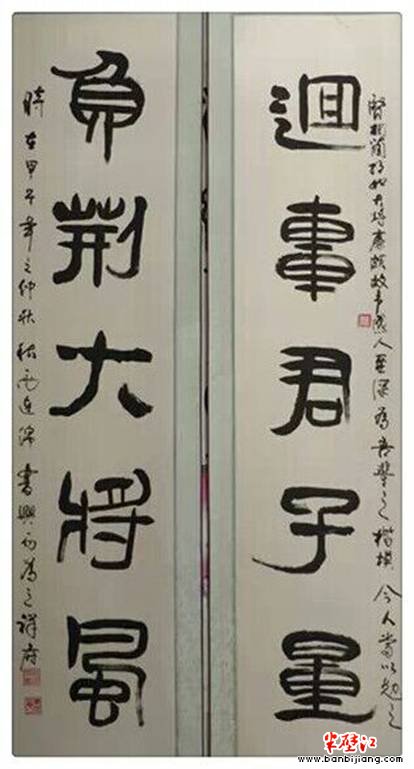 迴車君子量
賢相藺相如大将廉頗故事感人至深為吾輩之楷模今人當以勉之
負荆大将風
時在甲午年之仲秋 書興而為之祥府
半壁江
www.banbijiang.com